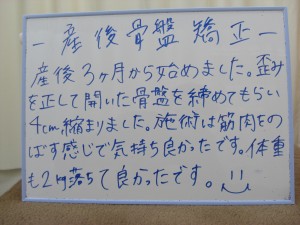 －産後骨盤矯正－
産後3ヶ月から始めました。歪み
を正して開いた骨盤を締めてもらい
4cm縮まりました。施術は筋肉をの
ばす感じで気持ち良かったです。体重
も2kg落ちて良かったです。